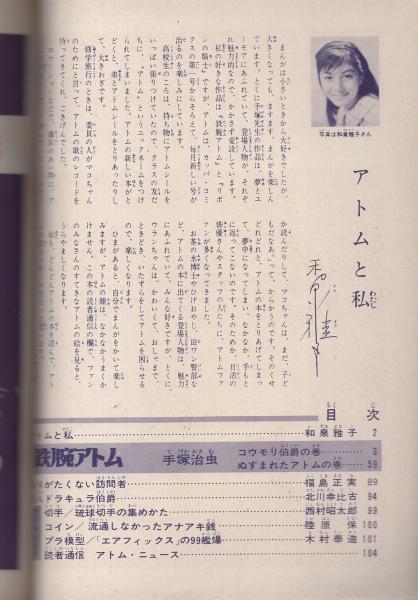 写真は和泉雅子さん
アトムと私
まんがは小さいときから大好きでしたが、
大きくなっても、ますます、まんがを楽しん
でいます。とくに手塚先生の作品は、夢とユ
ーモアにあふれていて、登場人物が、それぞ
れ魅力的なので、かかさず愛読しています。
私の好きな作品は『鉄腕アトム』と『リボ
ンの騎士』ですが、アトムは、カッパ・コミ
クスの第一号からそろえて、毎月新しい号が
出るのを楽しみにしています。
高校生のころは、持ち物にアトムシールを
いっぱい張りつけていたので、クラスの友だ
ちに、アトムというニックネームをつけ
られてしまいました。アトムの新しい本がと
どくと、弟とアトムシールをとりあったりし
て、大さわぎです。
修学旅行のときは、委員の人がマコちゃん
のためにと言って、アトムの歌のレコードを
持ってきてくれ、ごきげんでした。
か読んだりして、マコちゃんは、まだ、子ど
もだなあ」って、からかうのです。そのくせ
どれどれと、アトムの本をとりあげてしまっ
て、夢中になってしまい、なかなか、手もと
に返ってこないのです。そのためか、日活の
俳優さんやスタッフの人たちに、アトムファ
ンが多くなってきました。
お茶の水博士やひげおやじ、田ワシ警部な
ど、アトムの本に出てくる登場人物は、魅力
にあふれていて、みんな好きですが、とくに、
ウランちゃんは、かわいくて、おしゃまで、
ときどき、いたずらをしてアトムを困らせる
ので、楽しくなります。
ひまがあると、自分でまんがをかいて楽し
みますが、アトムの顔は、なかなかうまくか
けません。この本の読者通信の欄で、ファン
のみなさんのすてきなアトムの絵を見ると、
うらやましくなります。
目次
アトムと私 和泉雅子 2
鉄腕アトム 手塚治虫 コウモリ伯爵の巻 3
ぬすまれたアトムの巻 59
がたくない訪問者 福島正実 89
ドラキュラ伯爵 北川幸比古 94
切手/琉球切手の集めかた 西村昭太郎 99
コイン/流通しなかったアナアキ銭 陸原保 100
プラ模型/「エアフィックス」の99艦爆 木村泰造 101
読者通信 アトム・ニュース 104